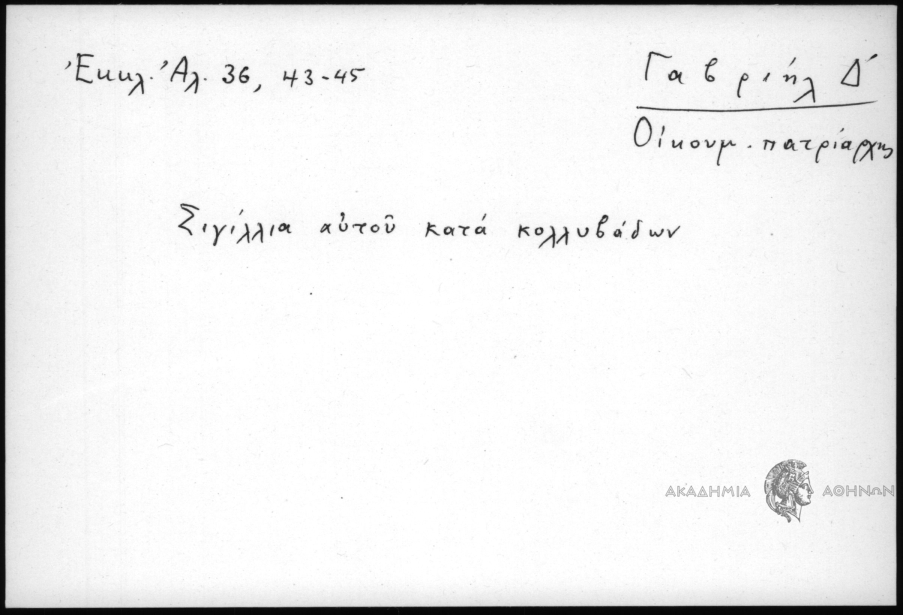 Ἐκκλ. Ἀλ. 36, 43-45
Γαβριήλ Δ΄
Οἰκουμ. πατριάρχης
Σιγίλλια αὐτοῦ κατά κολλυβάδων
ΑΚΑΔΗΜΙΑ ΑΘΗΝΩΝ